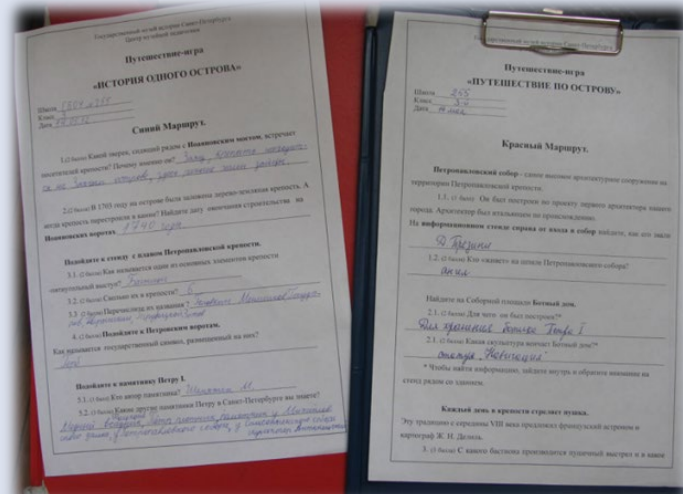 Государственный музей истории Санкт-Петербурга
Центр музейной педагогики
Путешествие-игра
«ИСТОРИЯ ОДНОГО ОСТРОВА»
Школа
Класс
Дата
Синий Маршрут.
1.(2 балла) Какой зверек, сидящий рядом с Иоанновским мостом, встречает
посетителей крепости? Почему именно он? Заяц. Крепость находит-
ся на Заячьем острове, здесь раньше жили зайцы.
2.(2 балла) В 1703 году на острове была заложена дерево-земляная крепость. А
когда крепость перестроили в камне? Найдите дату окончания строительства на
Иоанновских воротах 1740 года
Подойдите к стенду с планом Петропавловской крепости.
3.1. (2 балла) Как называется один из основных элементов крепости
-пятиугольный выступ? Бастион
3.2. (2 балла) Сколько их в крепости? 6
3.3 (2 балла) Перечислите их названия?
4. (2 балла) Подойдите к Петровским воротам.
Как называется государственный символ, размещенный на них?
Подойдите к памятнику Петру I.
5.1. (2 балла) Кто автор памятника? Шемякин М.
5.2. (2 балла) Какие другие памятники Петру в Санкт-Петербурге вы знаете?
Медный всадник,
Государственный музей истории Санкт-Петербурга
Путешествие-игра
«ПУТЕШЕСТВИЕ ПО ОСТРОВУ»
Школа 255
Класс
Дата
Красный Маршрут.
Петропавловский собор - самое высокое архитектурное сооружение на
территории Петропавловской крепости.
1.1. (2 балла) Он был построен по проекту первого архитектора нашего
города. Архитектор был итальянцем по происхождению.
На информационном стенде справа от входа в собор найдите, как его звали
Д. Трезини
1.2. (2 балла) Кто «живет» на шпиле Петропавловского собора?
ангел
Найдите на Соборной площади Ботный дом.
2.1. (2 балла) Для чего он был построен?*
Для хранения ботика Петра I
2.1. (2 балла) Какая скульптура венчает Ботный дом?*
статуя "Навигация"
* Чтобы найти информацию, зайдите внутрь и обратите внимание на
стенд рядом со зданием.
Каждый день в крепости стреляет пушка.
Эту традицию с середины VIII века предложил французский астроном и
картограф Ж. Н. Делиль.
3. (3 балла) С какого бастиона производится пушечный выстрел и в какое